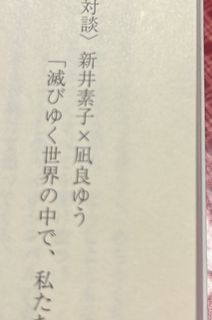 対談〉新井素子×凪良ゆう
「滅びゆく世界の中で、私たち